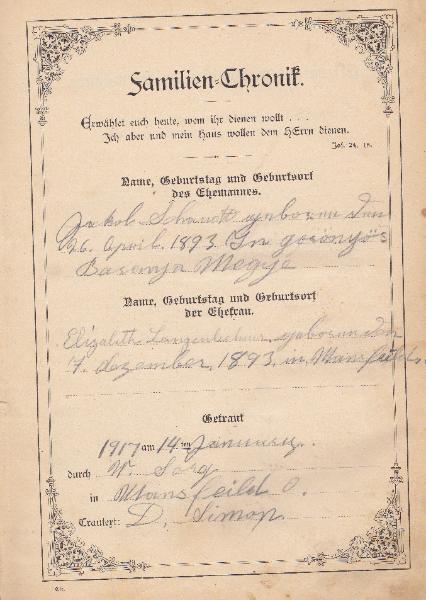 Familien-Chronik.
Erwählet euch heute, wem ihr dienen wollt . . .
Ich aber und mein Haus wollen dem HErrn dienen.
Jos. 24, 15.
Name, Geburtstag und Geburtsort
des Ehemannes.
Jakob geboren den
26. April. 1893. In
Baranya Megye
Name, Geburtstag und Geburtsort
der Ehefrau.
Elizabeth geboren den
7. dezember 1893. in Mansfeild
Getraut
1917 am 14ten January.
durch W. Sorg
in Mansfeild O.
Trautext: D. Simon